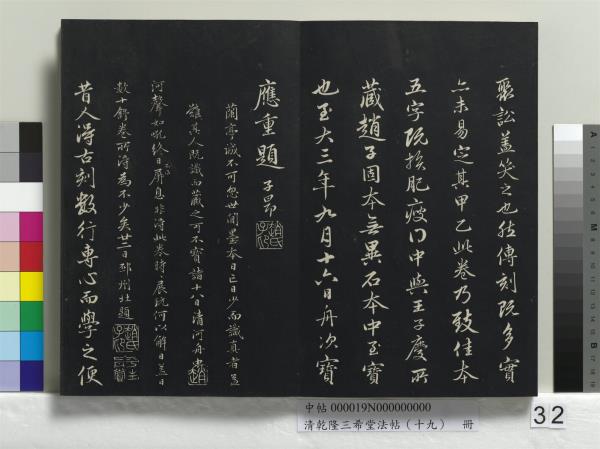 聚訟蓋笑之也然傳刻既多實
亦未易定其甲乙此卷乃致佳本
五字既損肥瘦得中與王子慶所
藏趙子固本無異石本中至寶
也至大三年九月十六日舟次寶
應重題 子昂
趙氏子昂
蘭亭誠不可忽世間墨本日亡日少而識真者益
難其人既識而藏之可不寶諸十八日清河舟中
河聲如吼終日屏息非得此卷時展玩何以解日蓋日
數十舒卷所得為不少矣廿二日邳州北題
趙氏子昂
昔人得古刻數行專心而學之便
中帖 000019N000000000
清乾隆三希堂法帖(十九) 冊
32